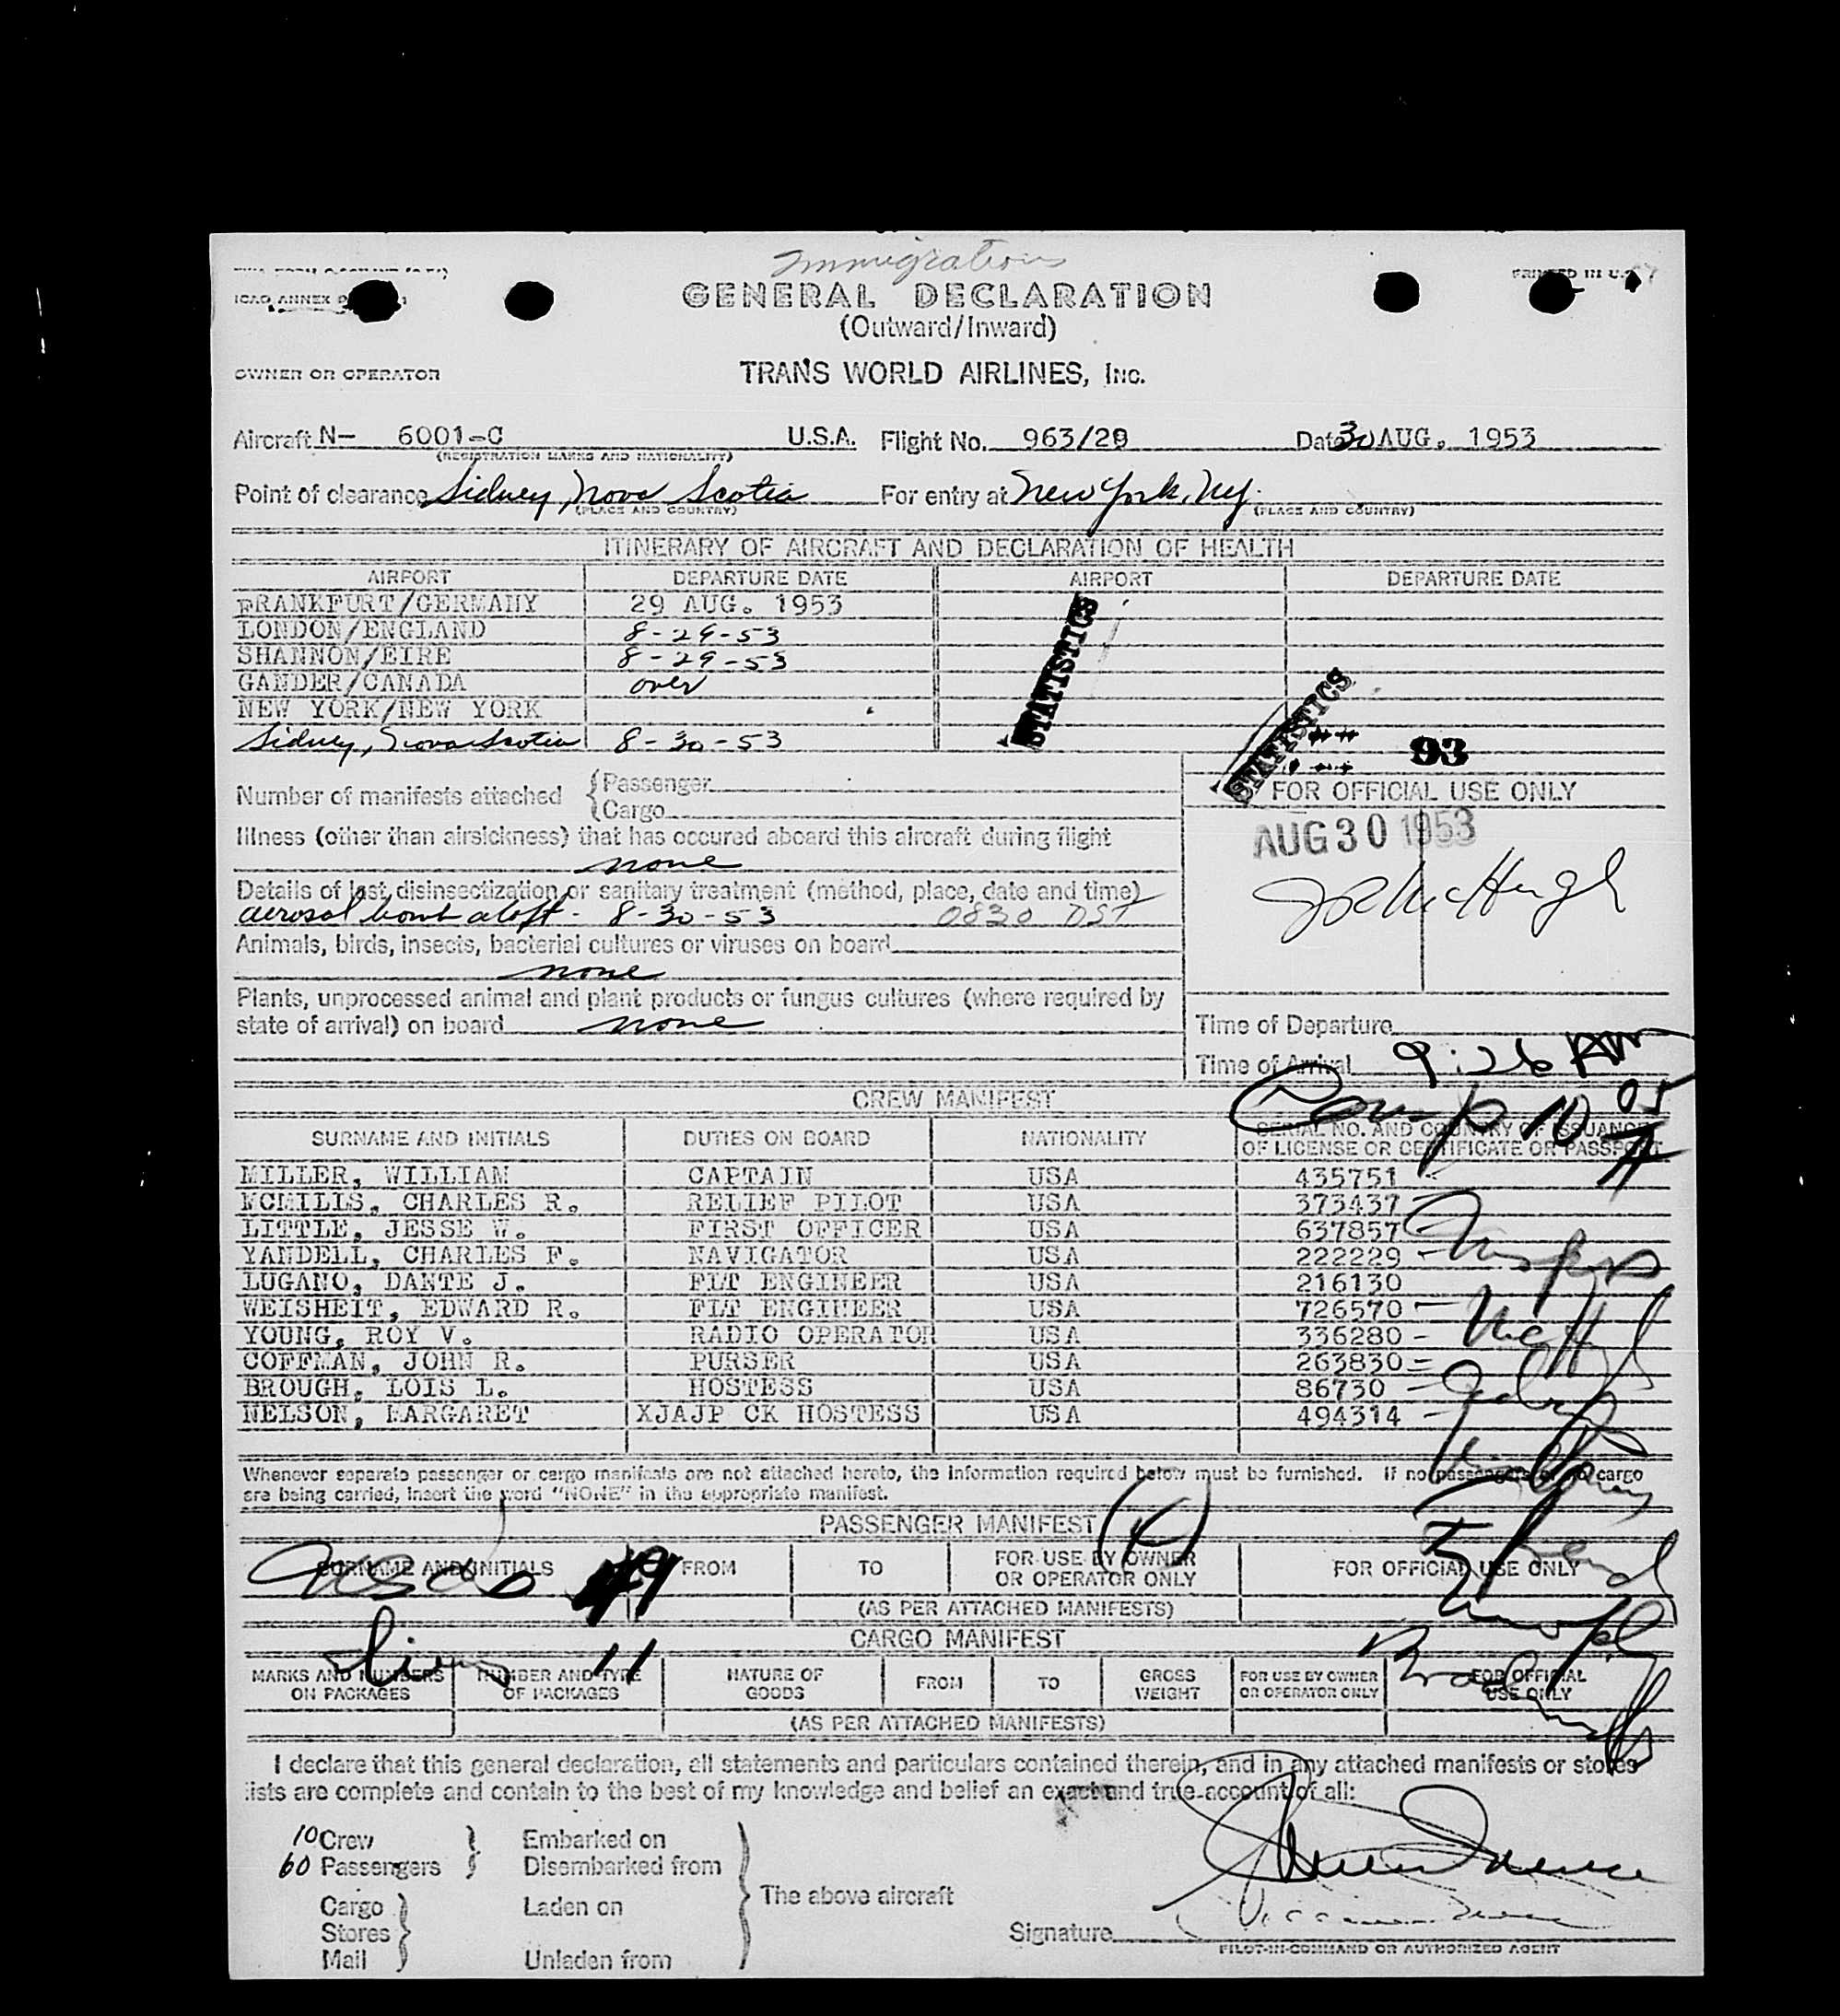 Immigration
ICAO ANNEX
PRINTED IN U.S.
GENERAL DECLARATION
(Outward/Inward)
OWNER OR OPERATOR
TRANS WORLD AIRLINES, INC.
Aircraft N- 6001-C U.S.A. Flight No. 963/29 Date 30 AUG. 1953
(REGISTRATION MARKS AND NATIONALITY)
Point of clearance Sidney, Nova Scotia For entry at New York, NY.
(PLACE AND COUNTRY) (PLACE AND COUNTRY)
ITINERARY OF AIRCRAFT AND DECLARATION OF HEALTH
AIRPORT DEPARTURE DATE AIRPORT DEPARTURE DATE
FRANKFURT/GERMANY 29 AUG. 1953
LONDON/ENGLAND 8-29-53
SHANNON/EIRE 8-29-53
GANDER/CANADA over
NEW YORK/NEW YORK
Sidney, Nova Scotia 8-30-53
STATISTICS
STATISTICS
93
Number of manifests attached {Passenger
{Cargo
FOR OFFICIAL USE ONLY
AUG 30 1953
Illness (other than airsickness) that has occured aboard this aircraft during flight
none
Details of last disinsectization or sanitary treatment (method, place, date and time)
aerosol bomb aloft - 8-30-53 0830 DST
Animals, birds, insects, bacterial cultures or viruses on board
none
Plants, unprocessed animal and plant products or fungus cultures (where required by
state of arrival) on board none
Time of Departure
Time of Arrival 9:26 AM
Comp 10 05 A
CREW MANIFEST
SURNAME AND INITIALS DUTIES ON BOARD NATIONALITY SERIAL NO. AND COUNTRY OF ISSUANCE
OF LICENSE OR CERTIFICATE OR PASSPORT
MILLER, WILLIAM CAPTAIN USA 435751
MCMILLS, CHARLES R. RELIEF PILOT USA 373437
LITTLE, JESSE W. FIRST OFFICER USA 637857
YANDELL, CHARLES F. NAVIGATOR USA 222229
LUGANO, DANTE J. FLT ENGINEER USA 216130
WEISHEIT, EDWARD R. FLT ENGINEER USA 726570
YOUNG, ROY V. RADIO OPERATOR USA 336280
COFFMAN, JOHN R. PURSER USA 263830
BROUGH, LOIS L. HOSTESS USA 86730
NELSON, MARGARET XJAJP CK HOSTESS USA 494314
Whenever separate passenger or cargo manifests are not attached hereto, the information required below must be furnished. If no passengers or no cargo
are being carried, insert the word "NONE" in the appropriate manifest.
PASSENGER MANIFEST
SURNAME AND INITIALS FROM TO FOR USE BY OWNER
OR OPERATOR ONLY FOR OFFICIAL USE ONLY
(AS PER ATTACHED MANIFESTS)
49
CARGO MANIFEST
11
MARKS AND NUMBERS
ON PACKAGES NUMBER AND TYPE
OF PACKAGES NATURE OF
GOODS FROM TO GROSS
WEIGHT FOR USE BY OWNER
OR OPERATOR ONLY FOR OFFICIAL
USE ONLY
(AS PER ATTACHED MANIFESTS)
I declare that this general declaration, all statements and particulars contained therein, and in any attached manifests or stores
lists are complete and contain to the best of my knowledge and belief an exact and true account of all:
10 Crew } Embarked on
60 Passengers } Disembarked from
The above aircraft
Cargo Laden on
Stores
Mail Unladen from
Signature
PILOT-IN-COMMAND OR AUTHORIZED AGENT